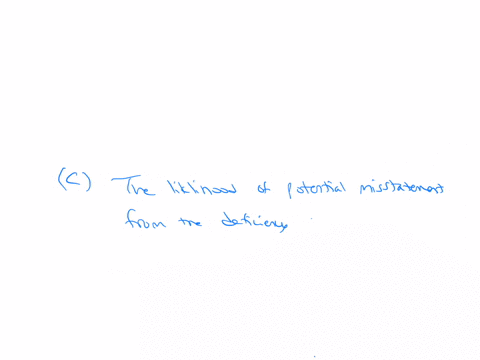 (C) The liklinood of potential misstatement
from the deficiency